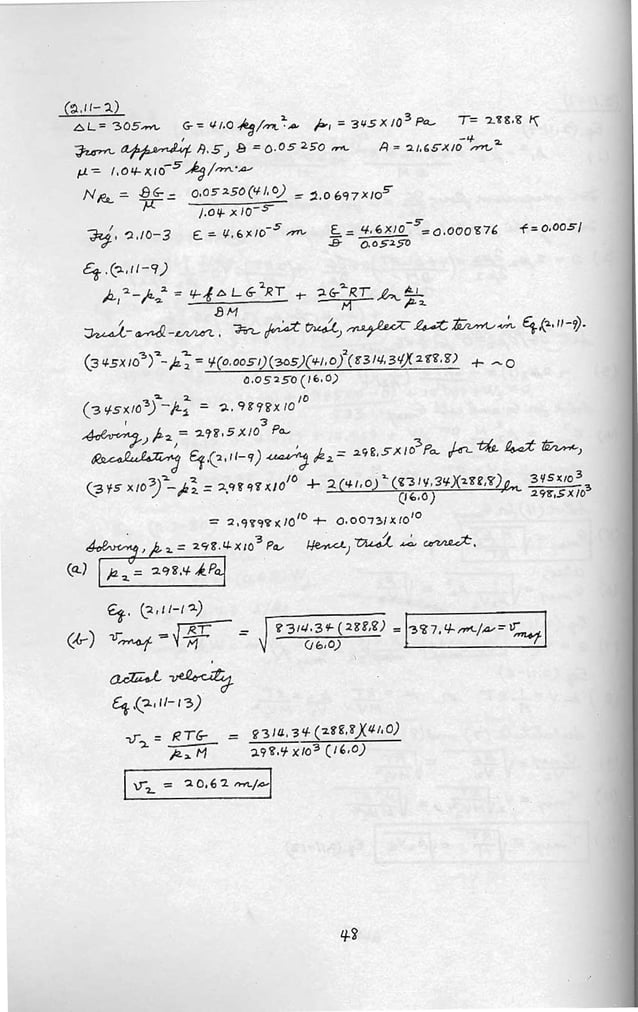 (2.11-2)
ΔL = 305 m   G = 41.0 kg/m²·s   p₁ = 345 x 10³ Pa   T = 288.8 K
From appendix A.5, D = 0.05250 m   A = 21.65 x 10⁻⁴ m²
μ = 1.04 x 10⁻⁵ kg/m·s
N_Re = DG/μ = 0.05250(41.0)/1.04 x 10⁻⁵ = 2.0697 x 10⁵
Fig. 2.10-3   ε = 4.6 x 10⁻⁵ m   ε/D = 4.6 x 10⁻⁵/0.05250 = 0.000876   f = 0.0051
Eq. (2.11-9)
p₁² - p₂² = 4fΔLG²RT/DM + 2G²RT/M ln p₁/p₂
Trial-and-error. For first trial, neglect last term in Eq. (2.11-9).
(345 x 10³)² - p₂² = 4(0.0051)(305)(41.0)²(8314.34)(288.8)/0.05250(16.0) + ~0
(345 x 10³)² - p₂² = 2.9898 x 10¹⁰
Solving, p₂ = 298.5 x 10³ Pa
Recalculating Eq. (2.11-9) using p₂ = 298.5 x 10³ Pa for the last term,
(345 x 10³)² - p₂² = 2.9898 x 10¹⁰ + 2(41.0)²(8314.34)(288.8)/(16.0) ln 345 x 10³/298.5 x 10³
= 2.9898 x 10¹⁰ + 0.00731 x 10¹⁰
Solving, p₂ = 298.4 x 10³ Pa   Hence, trial is correct.
(a) p₂ = 298.4 kPa
Eq. (2.11-12)
(b) v_max = √(RT/M) = √(8314.34(288.8)/(16.0)) = 387.4 m/s = v_max
actual velocity
Eq. (2.11-13)
v₂ = RTG/p₂M = 8314.34(288.8)(41.0)/298.4 x 10³(16.0)
v₂ = 20.62 m/s
48